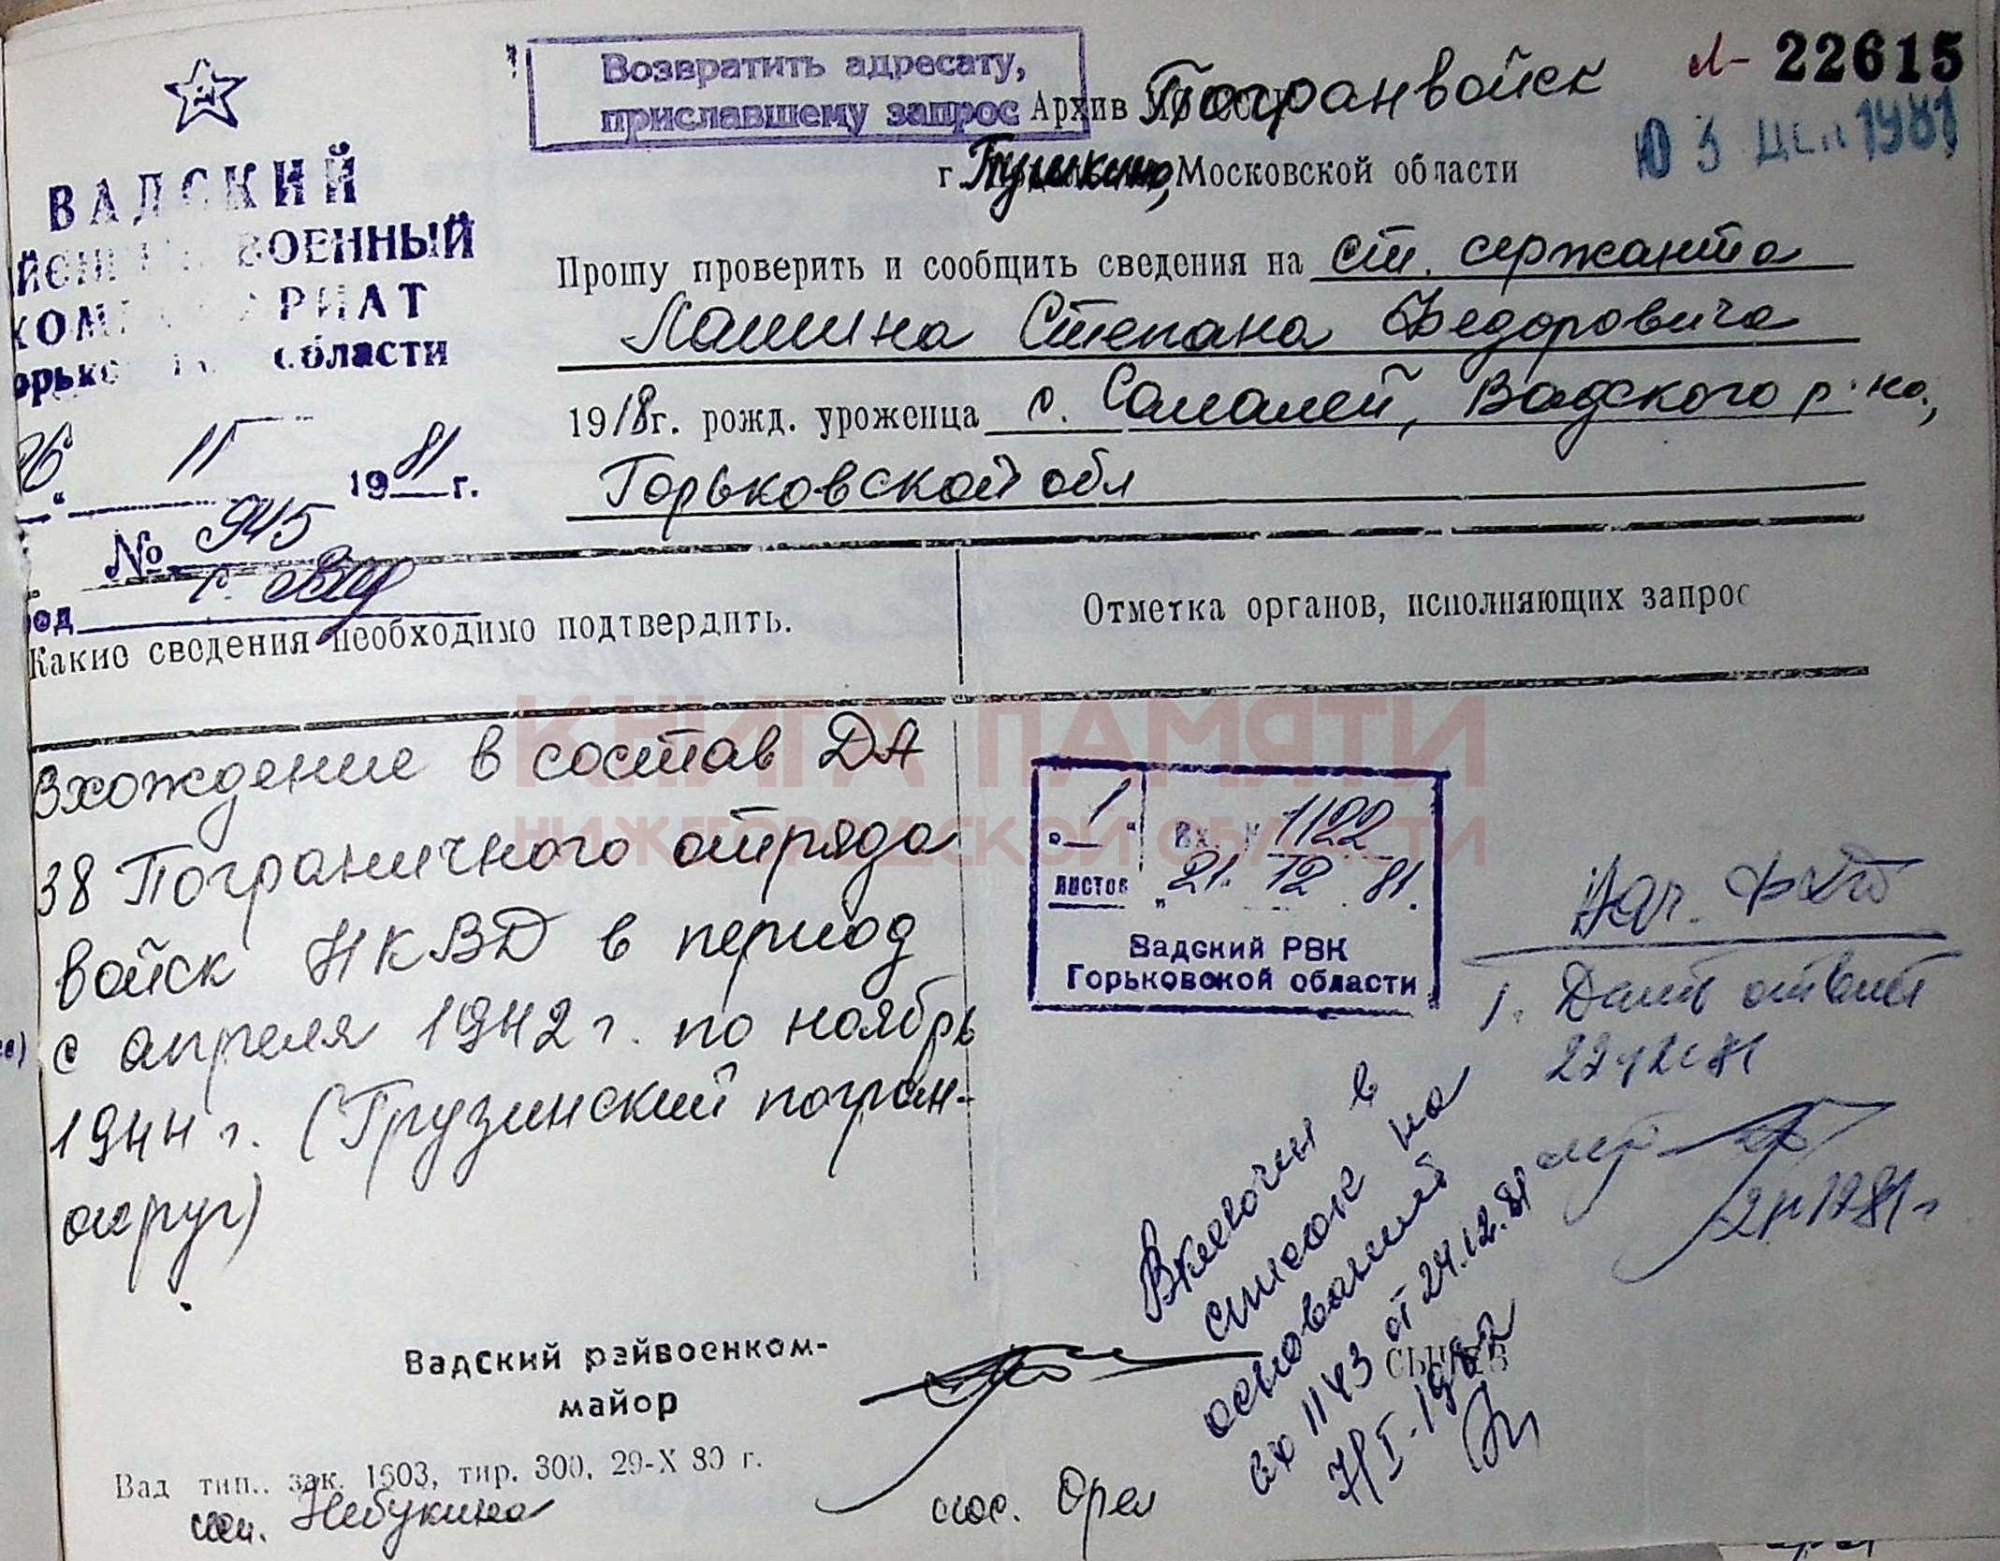 Возвратить адресату,
приславшему запрос
л- 22615
Архив Погранвойск
3 дек 1981
г. Пушкино, Московской области
ВАДСКИЙ
ВОЕННЫЙ
РИАТ
области
26 11 1981 г.
№ 945
г. Вад
Прошу проверить и сообщить сведения на ст. сержанта
Лашина Степана Федоровича
1918г. рожд. уроженца с. Салалей, Вадского р-на,
Горьковской обл
Какие сведения необходимо подтвердить.
Отметка органов, исполняющих запрос
КНИГА ПАМЯТИ
НИЖЕГОРОДСКОЙ ОБЛАСТИ
Вхождение в состав ДА
38 Пограничного отряда
войск НКВД в период
с апреля 1942 г. по ноябрь
1944 г. (Грузинский погран-
округ)
1 Вх. № 1122
листов „21. 12 81.
Вадский РВК
Горьковской области
1. Дать ответ
Включен в
список на
основании
вх 1143 от 24.12.81
Вадский райвоенком-
майор
Вад тип.. зак. 1603, тир. 300, 29-X 80 г.
исп. Небукина
Орел